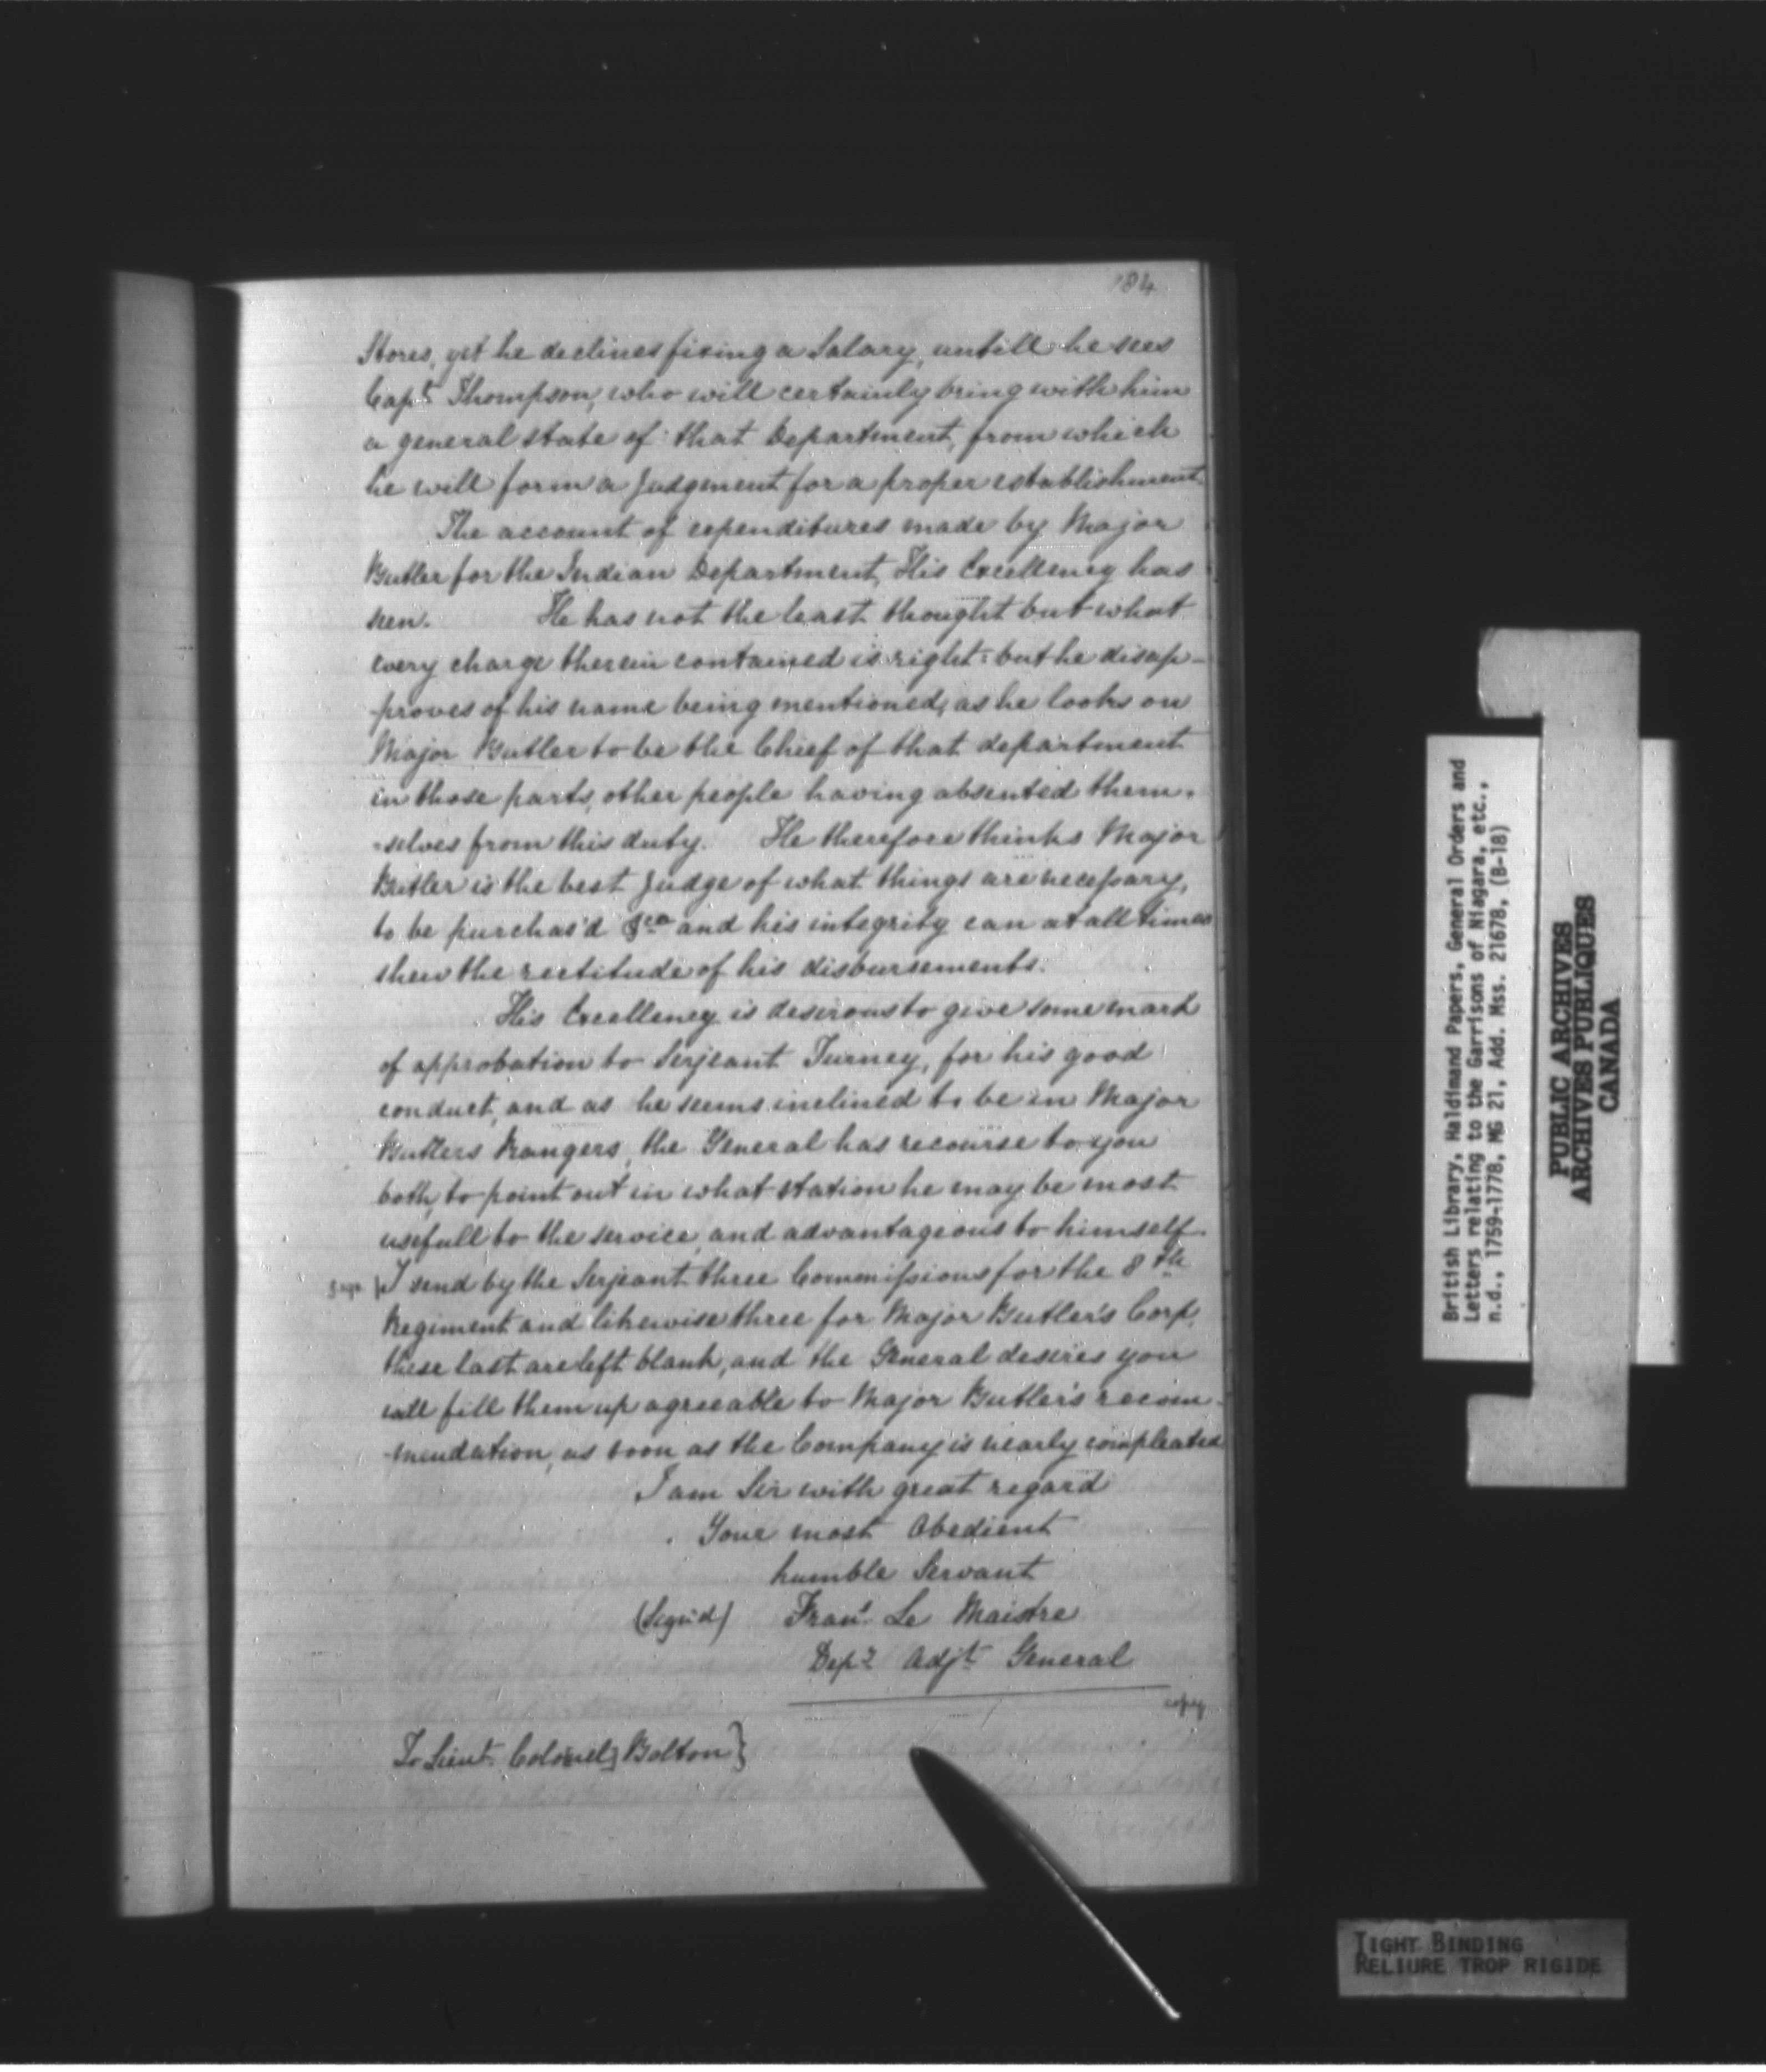 184
Stores, yet he declines fixing a Salary, untill he sees
Capt. Thompson, who will certainly bring with him
a general state of that Department, from which
he will form a Judgment for a proper establishment.
The account of expenditures made by Major
Butler for the Indian Department, His Excellency has
seen. He has not the least thought but what
every charge therein contained is right: but he disap-
-proves of his name being mentioned, as he looks on
Major Butler to be the Chief of that department
in those parts, other people having absented them-
-selves from this duty. He therefore thinks Major
Butler is the best Judge of what things are necessary,
to be purchas'd &ca and his integrity can at all times
shew the rectitude of his disbursements.
His Excellency is desirous to give some mark
of approbation to Serjeant Turney, for his good
conduct, and as he seems inclined to be in Major
Butlers Rangers, the General has recourse to you
both, to point out in what station he may be most
usefull to the service and advantageous to himself.
I send by the Serjeant three Commissions for the 8th
Regiment and likewise three for Major Butler's Corp,
these last are left blank, and the General desires you
will fill them up agreeable to Major Butler's recom-
-mendation, as soon as the Company is nearly compleated
I am Sir with great regard
Your most Obedient
humble Servant
(Signd) Frans. Le Maistre
Depy Adjt General
copy
To Lieut. Colonel Bolton}
British Library, Haldimand Papers, General Orders and
Letters relating to the Garrisons of Niagara, etc.,
n.d., 1759-1778, MG 21, Add. Mss. 21678, (B-18)
PUBLIC ARCHIVES
ARCHIVES PUBLIQUES
CANADA
TIGHT BINDING
RELIURE TROP RIGIDE